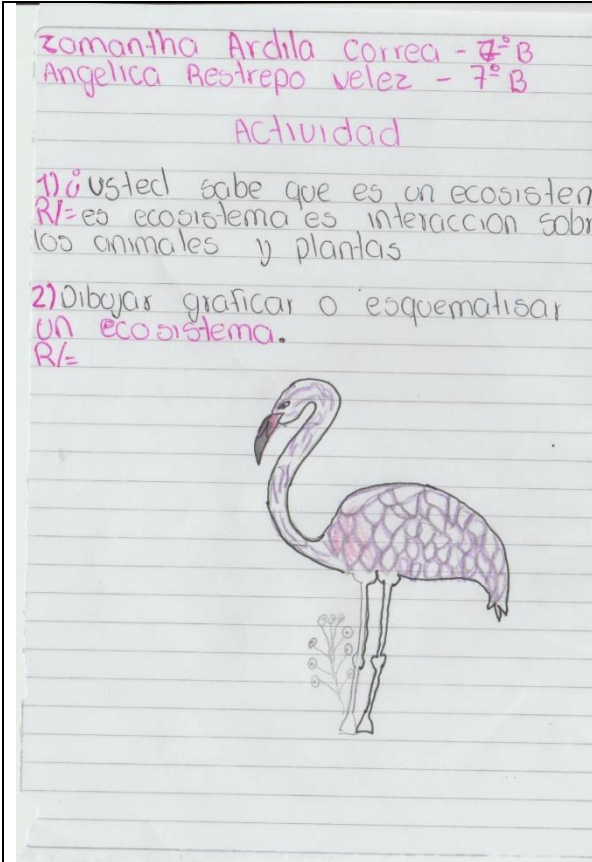 zamantha Ardila correa - 7º B
Angelica Restrepo velez - 7º B
Actividad
1) ¿usted sabe que es un ecosistem
R/= es ecosistema es interaccion sobr
los animales y plantas
2) Dibujar graficar o esquematisar
un ecosistema.
R/=